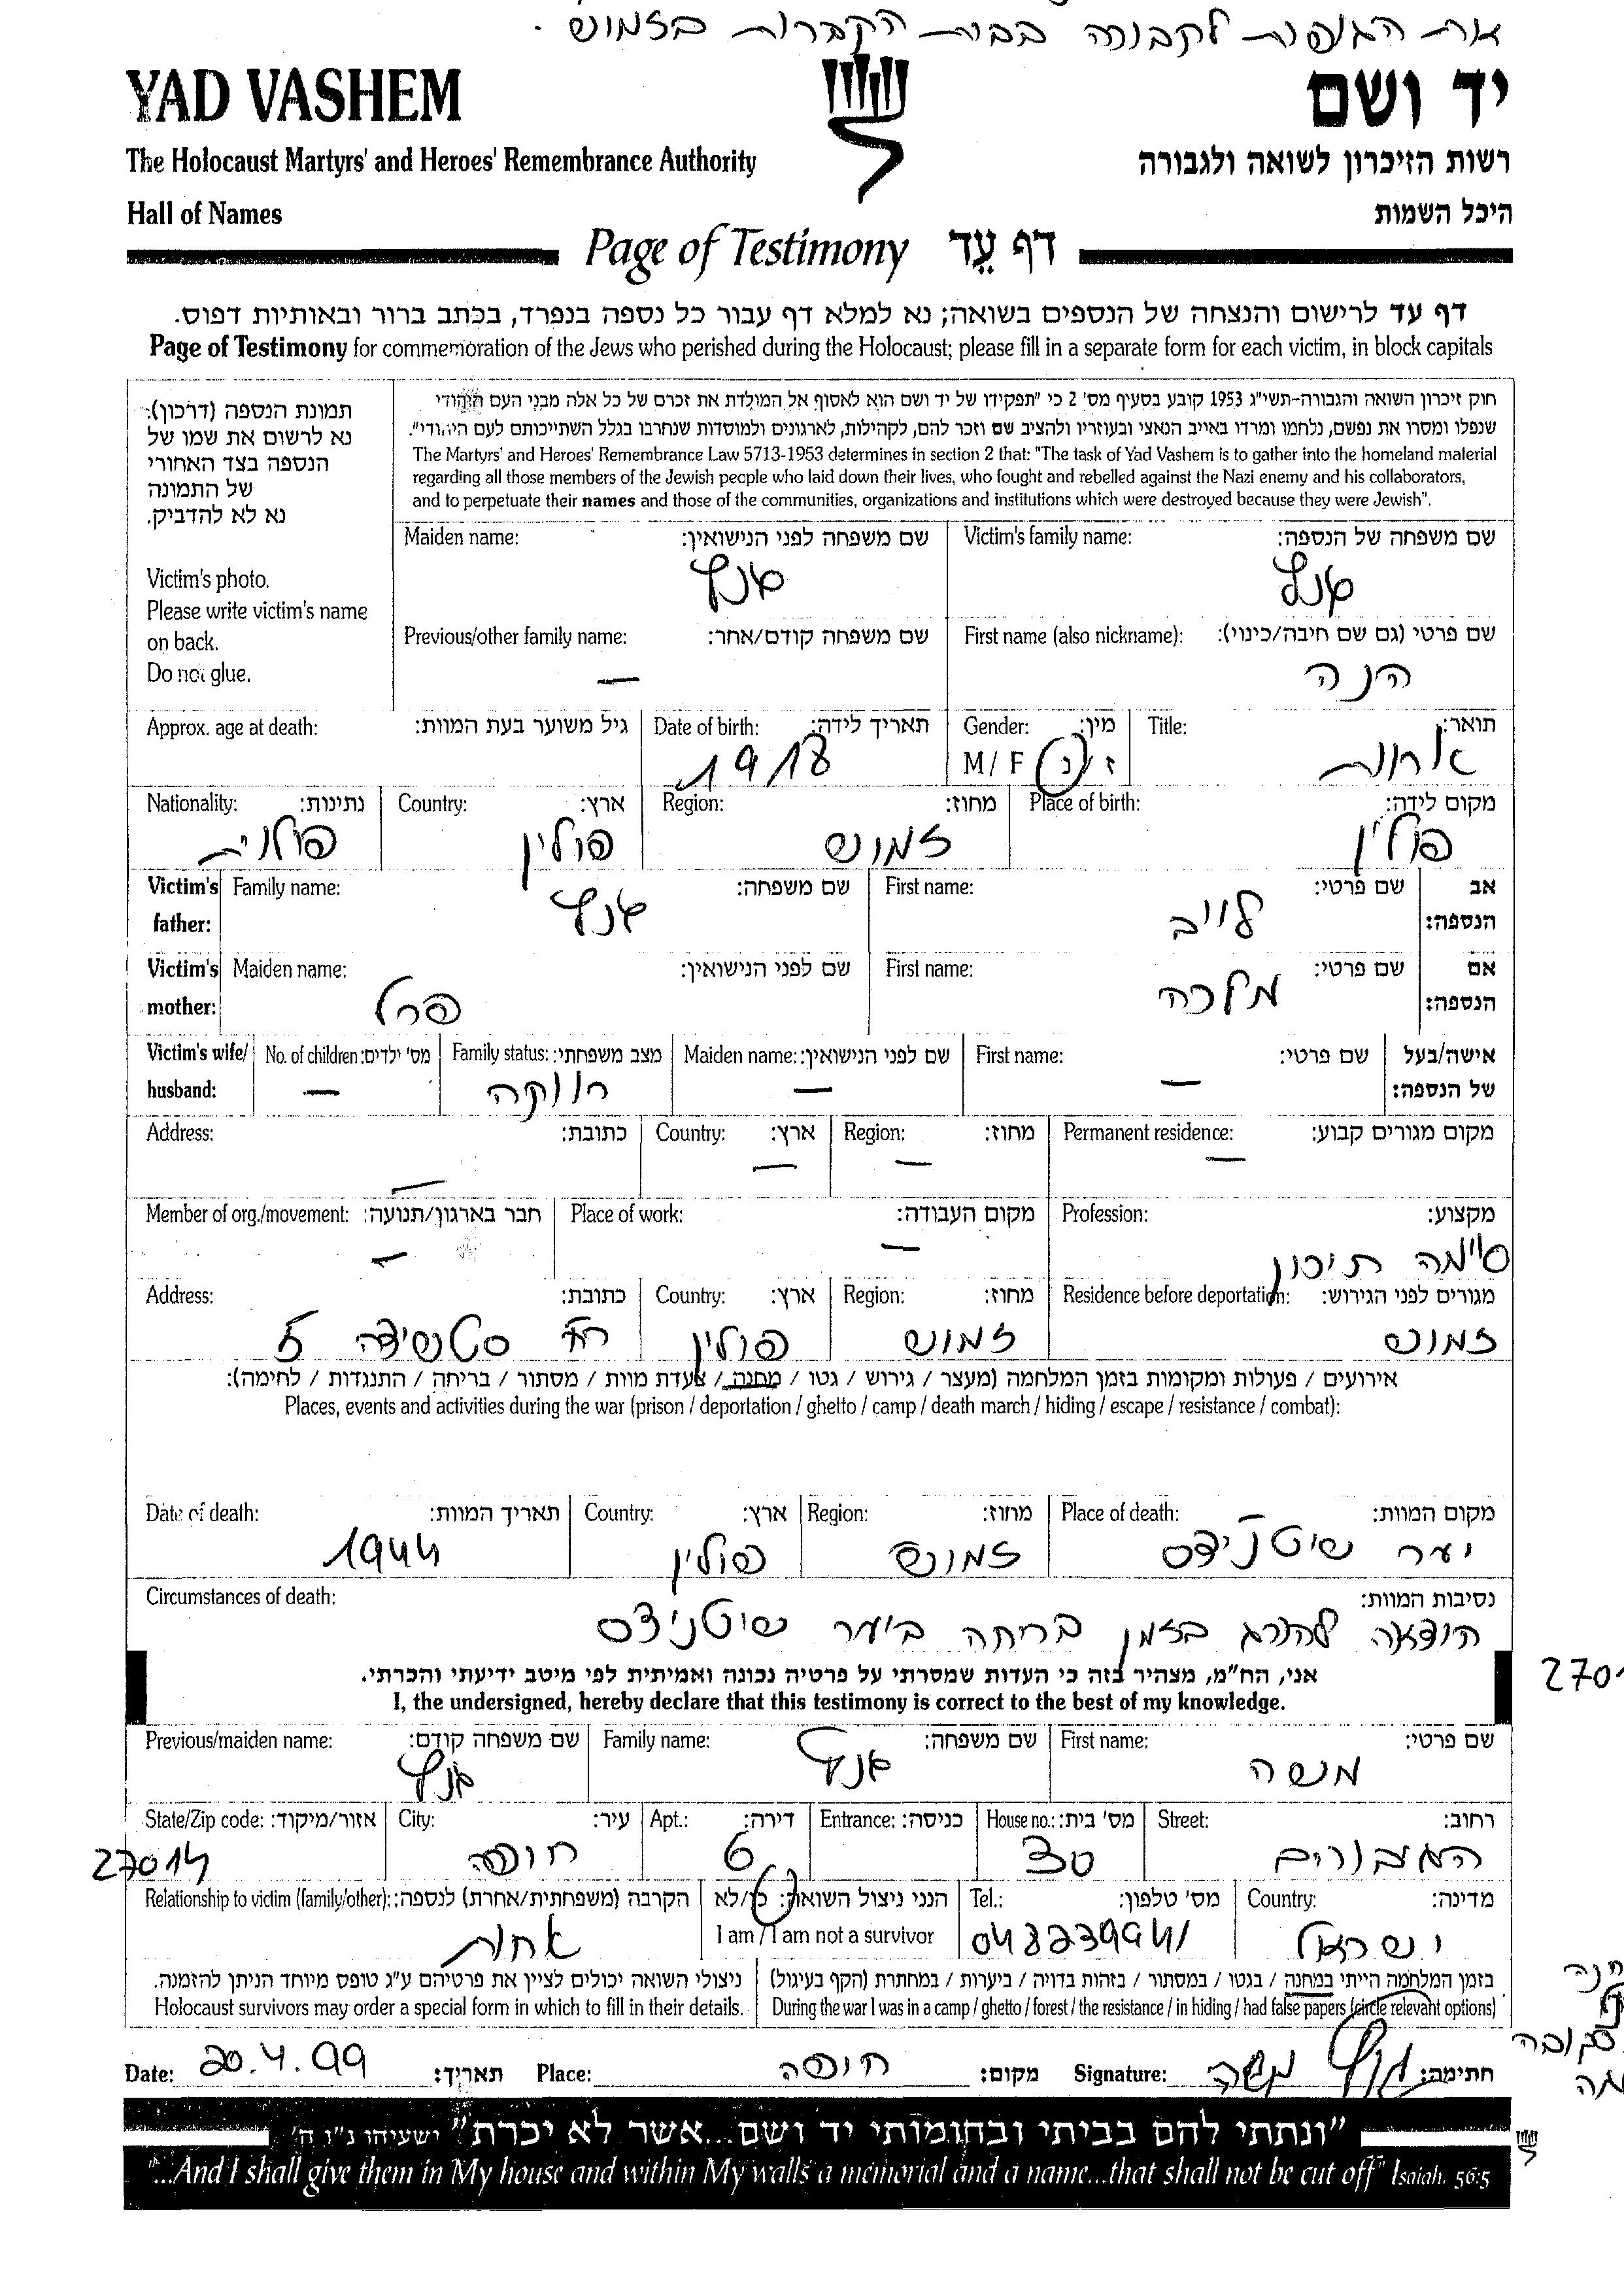 את הגופות לקבורה בבית הקברות בזמוש.
YAD VASHEM
יד ושם
The Holocaust Martyrs' and Heroes' Remembrance Authority
רשות הזיכרון לשואה ולגבורה
Hall of Names
היכל השמות
Page of Testimony דף עֵד
דף עד לרישום והנצחה של הנספים בשואה; נא למלא דף עבור כל נספה בנפרד, בכתב ברור ובאותיות דפוס.
Page of Testimony for commemoration of the Jews who perished during the Holocaust; please fill in a separate form for each victim, in block capitals
תמונת הנספה (דרכון):
נא לרשום את שמו של
הנספה בצד האחורי
של התמונה
נא לא להדביק.
Victim's photo.
Please write victim's name
on back.
Do not glue.
חוק זיכרון השואה והגבורה-תשי"ג 1953 קובע בסעיף מס' 2 כי "תפקידו של יד ושם הוא לאסוף אל המולדת את זכרם של כל אלה מבני העם היהודי
שנפלו ומסרו את נפשם, נלחמו ומרדו באוייב הנאצי ובעוזריו ולהציב שם וזכר להם, לקהילות, לארגונים ולמוסדות שנחרבו בגלל השתייכותם לעם היהודי".
The Martyrs' and Heroes' Remembrance Law 5713-1953 determines in section 2 that: "The task of Yad Vashem is to gather into the homeland material
regarding all those members of the Jewish people who laid down their lives, who fought and rebelled against the Nazi enemy and his collaborators,
and to perpetuate their names and those of the communities, organizations and institutions which were destroyed because they were Jewish".
Maiden name: שם משפחה לפני הנישואין: Victim's family name: שם משפחה של הנספה:
Previous/other family name: שם משפחה קודם/אחר: First name (also nickname): שם פרטי (גם שם חיבה/כינוי):
— הנה
Approx. age at death: גיל משוער בעת המוות: Date of birth: תאריך לידה: Gender: מין: Title: תואר:
1918 M / F ז / נ אחות
Nationality: נתינות: Country: ארץ: Region: מחוז: Place of birth: מקום לידה:
פולנית פולין זמוש פולין
Victim's father: Family name: שם משפחה: First name: שם פרטי: אב הנספה:
לייב
Victim's mother: Maiden name: שם לפני הנישואין: First name: שם פרטי: אם הנספה:
פרל מלכה
Victim's wife/ husband: No. of children: מס' ילדים: Family status: מצב משפחתי: Maiden name: שם לפני הנישואין: First name: שם פרטי: אישה/בעל של הנספה:
— רווקה — —
Address: כתובת: Country: ארץ: Region: מחוז: Permanent residence: מקום מגורים קבוע:
— — — —
Member of org./movement: חבר בארגון/תנועה: Place of work: מקום העבודה: Profession: מקצוע:
— — סיימה תיכון
Address: כתובת: Country: ארץ: Region: מחוז: Residence before deportation: מגורים לפני הגירוש:
רח' סטשיצה 5 פולין זמוש זמוש
אירועים / פעולות ומקומות בזמן המלחמה (מעצר / גירוש / גטו / מחנה / צעדת מוות / מסתור / בריחה / התנגדות / לחימה):
Places, events and activities during the war (prison / deportation / ghetto / camp / death march / hiding / escape / resistance / combat):
Date of death: תאריך המוות: Country: ארץ: Region: מחוז: Place of death: מקום המוות:
1944 פולין זמוש יער שוטניצס
Circumstances of death: נסיבות המוות:
הוצאה להורג בזמן בריחה ביער שוטניצס
אני, הח"מ, מצהיר בזה כי העדות שמסרתי על פרטיה נכונה ואמיתית לפי מיטב ידיעתי והכרתי.
I, the undersigned, hereby declare that this testimony is correct to the best of my knowledge.
Previous/maiden name: שם משפחה קודם: Family name: שם משפחה: First name: שם פרטי:
משה
State/Zip code: אזור/מיקוד: City: עיר: Apt.: דירה: Entrance: כניסה: House no.: מס' בית: Street: רחוב:
27014 חיפה 6 30 הגיבורים
Relationship to victim (family/other): הקרבה (משפחתית/אחרת) לנספה: הנני ניצול השואה: כן/לא Tel.: מס' טלפון: Country: מדינה:
אחות I am / I am not a survivor 048239941 ישראל
ניצולי השואה יכולים לציין את פרטיהם ע"ג טופס מיוחד הניתן להזמנה.
Holocaust survivors may order a special form in which to fill in their details.
בזמן המלחמה הייתי במחנה / בגטו / במסתור / בזהות בדויה / ביערות / במחתרת (הקף בעיגול)
During the war I was in a camp / ghetto / forest / the resistance / in hiding / had false papers (circle relevant options)
Date: 20.4.99 תאריך: Place: חיפה מקום: Signature: משה חתימה:
"ונתתי להם בביתי ובחומותי יד ושם...אשר לא יכרת" ישעיהו נ"ו ה'
"...And I shall give them in My house and within My walls a memorial and a name...that shall not be cut off" Isaiah. 56:5